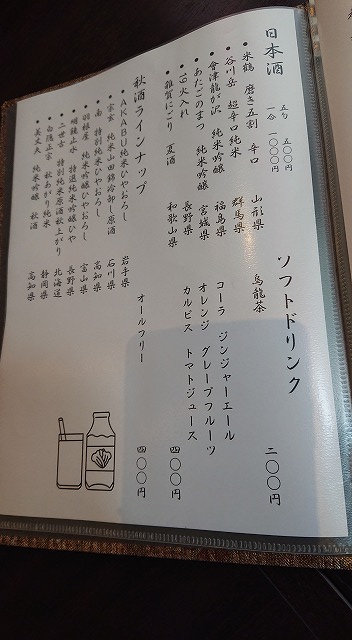 日本酒
五勺 五〇〇円
一合 一〇〇〇円
・米鶴 磨き五割 辛口 山形県
・谷川岳 超辛口純米 群馬県
・會津龍が沢 純米吟醸 福島県
・あたごのまつ 純米吟醸 宮城県
・19 火入れ 長野県
・雑賀にごり 夏酒 和歌山県
秋酒ラインナップ
・AKABU純米ひやおろし 岩手県
・宗玄 純米山田錦冷卸し原酒 石川県
・南 特別純米ひやおろし 高知県
・羽根屋 純米吟醸ひやおろし 富山県
・明鏡止水 特選純米吟醸ひや 長野県
・二世古 特別純米原酒秋上がり 北海道
・白隠正宗 秋あがり純米 静岡県
・美丈夫 純米吟醸 秋酒 高知県
ソフトドリンク
烏龍茶 二〇〇円
コーラ ジンジャーエール
オレンジ グレープフルーツ
カルピス トマトジュース 四〇〇円
オールフリー 四〇〇円